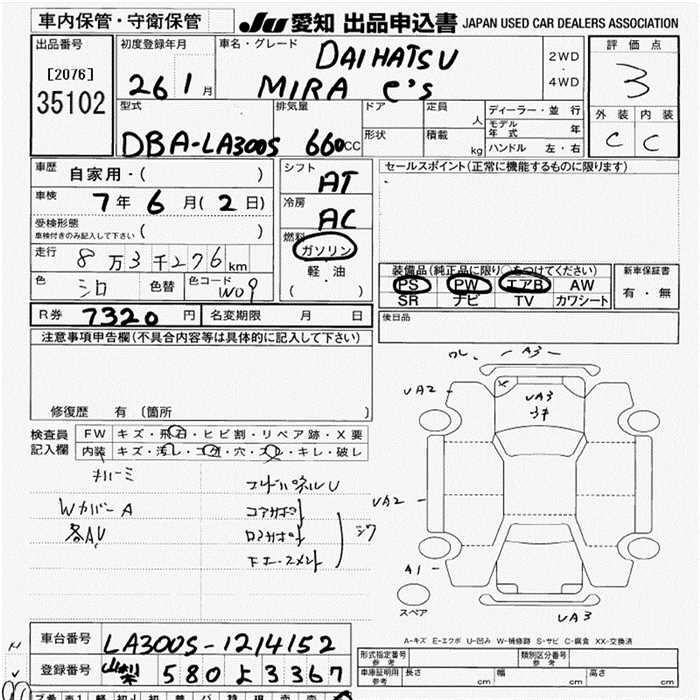 車内保管・守衛保管
JU 愛知 出品申込書 JAPAN USED CAR DEALERS ASSOCIATION
出品番号
[2076]
35102
初度登録年月
26 1月
車名・グレード
DAIHATSU
MIRA e's
2WD
・
4WD
評価点
3
外装 内装
C C
型式
DBA-LA300S
排気量
660cc
ドア
形状
定員 人
積載 kg
ディーラー・並行
モデル年式 年
ハンドル 左・右
車歴
自家用・( )
車検
7年 6月(2日)
受検形態
車検付きのみ記入して下さい ( )
走行
8万3千276km
色 シロ 色替 色コード W09
シフト
AT
冷房
AC
燃料
ガソリン
・
軽油
・
( )
セールスポイント(正常に機能するものに限ります)
装備品(純正品に限り○をつけてください)
PS PW エアB AW
SR ナビ TV カワシート
新車保証書
有・無
R券 7320円 名変期限 月 日
後日品
注意事項申告欄(不具合内容等は具体的に記入して下さい)
修復歴 有 (箇所 )
検査員
記入欄
FW キズ・飛石・ヒビ割・リペア跡・X要
内装 キズ・汚レ・コゲ・穴・スレ・キレ・破レ
WカバーA
各AU
コアサポ
ロアサポ
シワ
ワレ
A3
UA2
UA3
UA2
A1
UA3
スペア
A-キズ E-エクボ U-凹み W-補修跡 S-サビ C-腐食 XX-交換済
車台番号 LA300S-1214152
登録番号 山梨 580 よ 3367
形式指定番号
参考
類別区分番号
参考
車庫証明用
参考
長さ cm 幅 cm 高さ cm